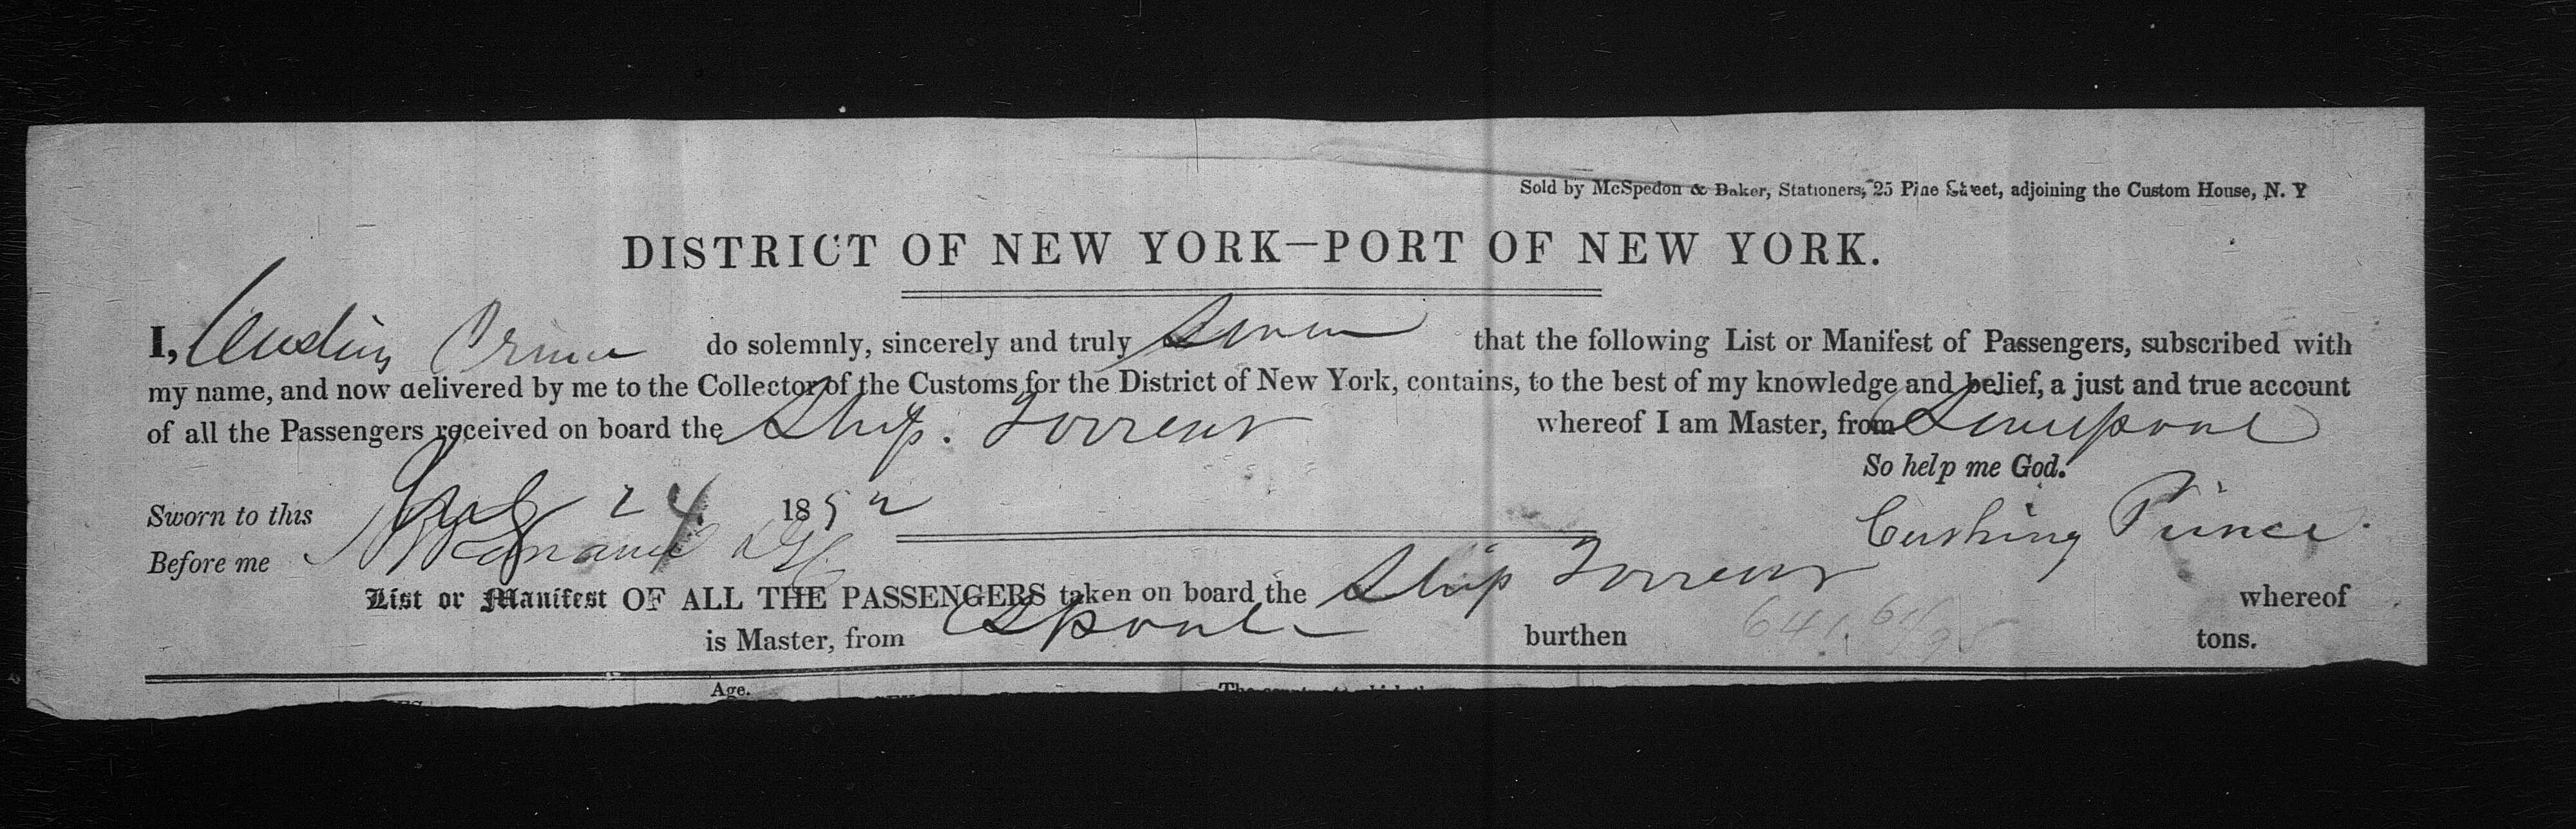 Sold by McSpedon & Baker, Stationers, 25 Pine Street, adjoining the Custom House, N. Y
DISTRICT OF NEW YORK—PORT OF NEW YORK.
I, Cushing Prince do solemnly, sincerely and truly Swear that the following List or Manifest of Passengers, subscribed with
my name, and now delivered by me to the Collector of the Customs for the District of New York, contains, to the best of my knowledge and belief, a just and true account
of all the Passengers received on board the Ship. Torrent whereof I am Master, from Liverpool
So help me God.
Sworn to this 24 1852
Cushing Prince.
Before me
List or Manifest OF ALL THE PASSENGERS taken on board the Ship Torrent whereof
is Master, from Lpool burthen 641. 61/95 tons.
Age.